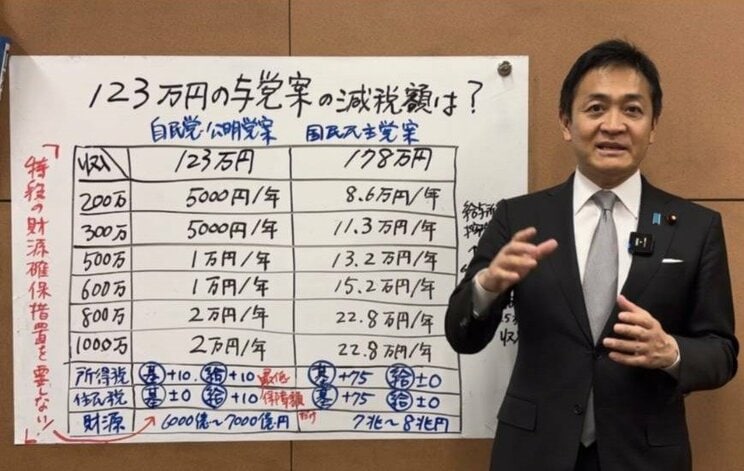 123万円の与党案の減税額は?
自民党/公明党案 国民民主党案
収入 123万円 178万円
200万 5000円/年 8.6万円/年
300万 5000円/年 11.3万円/年
500万 1万円/年 13.2万円/年
600万 1万円/年 15.2万円/年
800万 2万円/年 22.8万円/年
1000万 2万円/年 22.8万円/年
所得税 基+10. 給+10 最低 基+75 給±0
住民税 基±0 給+10 保障額だけ 基+75 給±0
財源 6000億〜7000億円 7兆〜8兆円
「特段の財源確保措置を要しない」